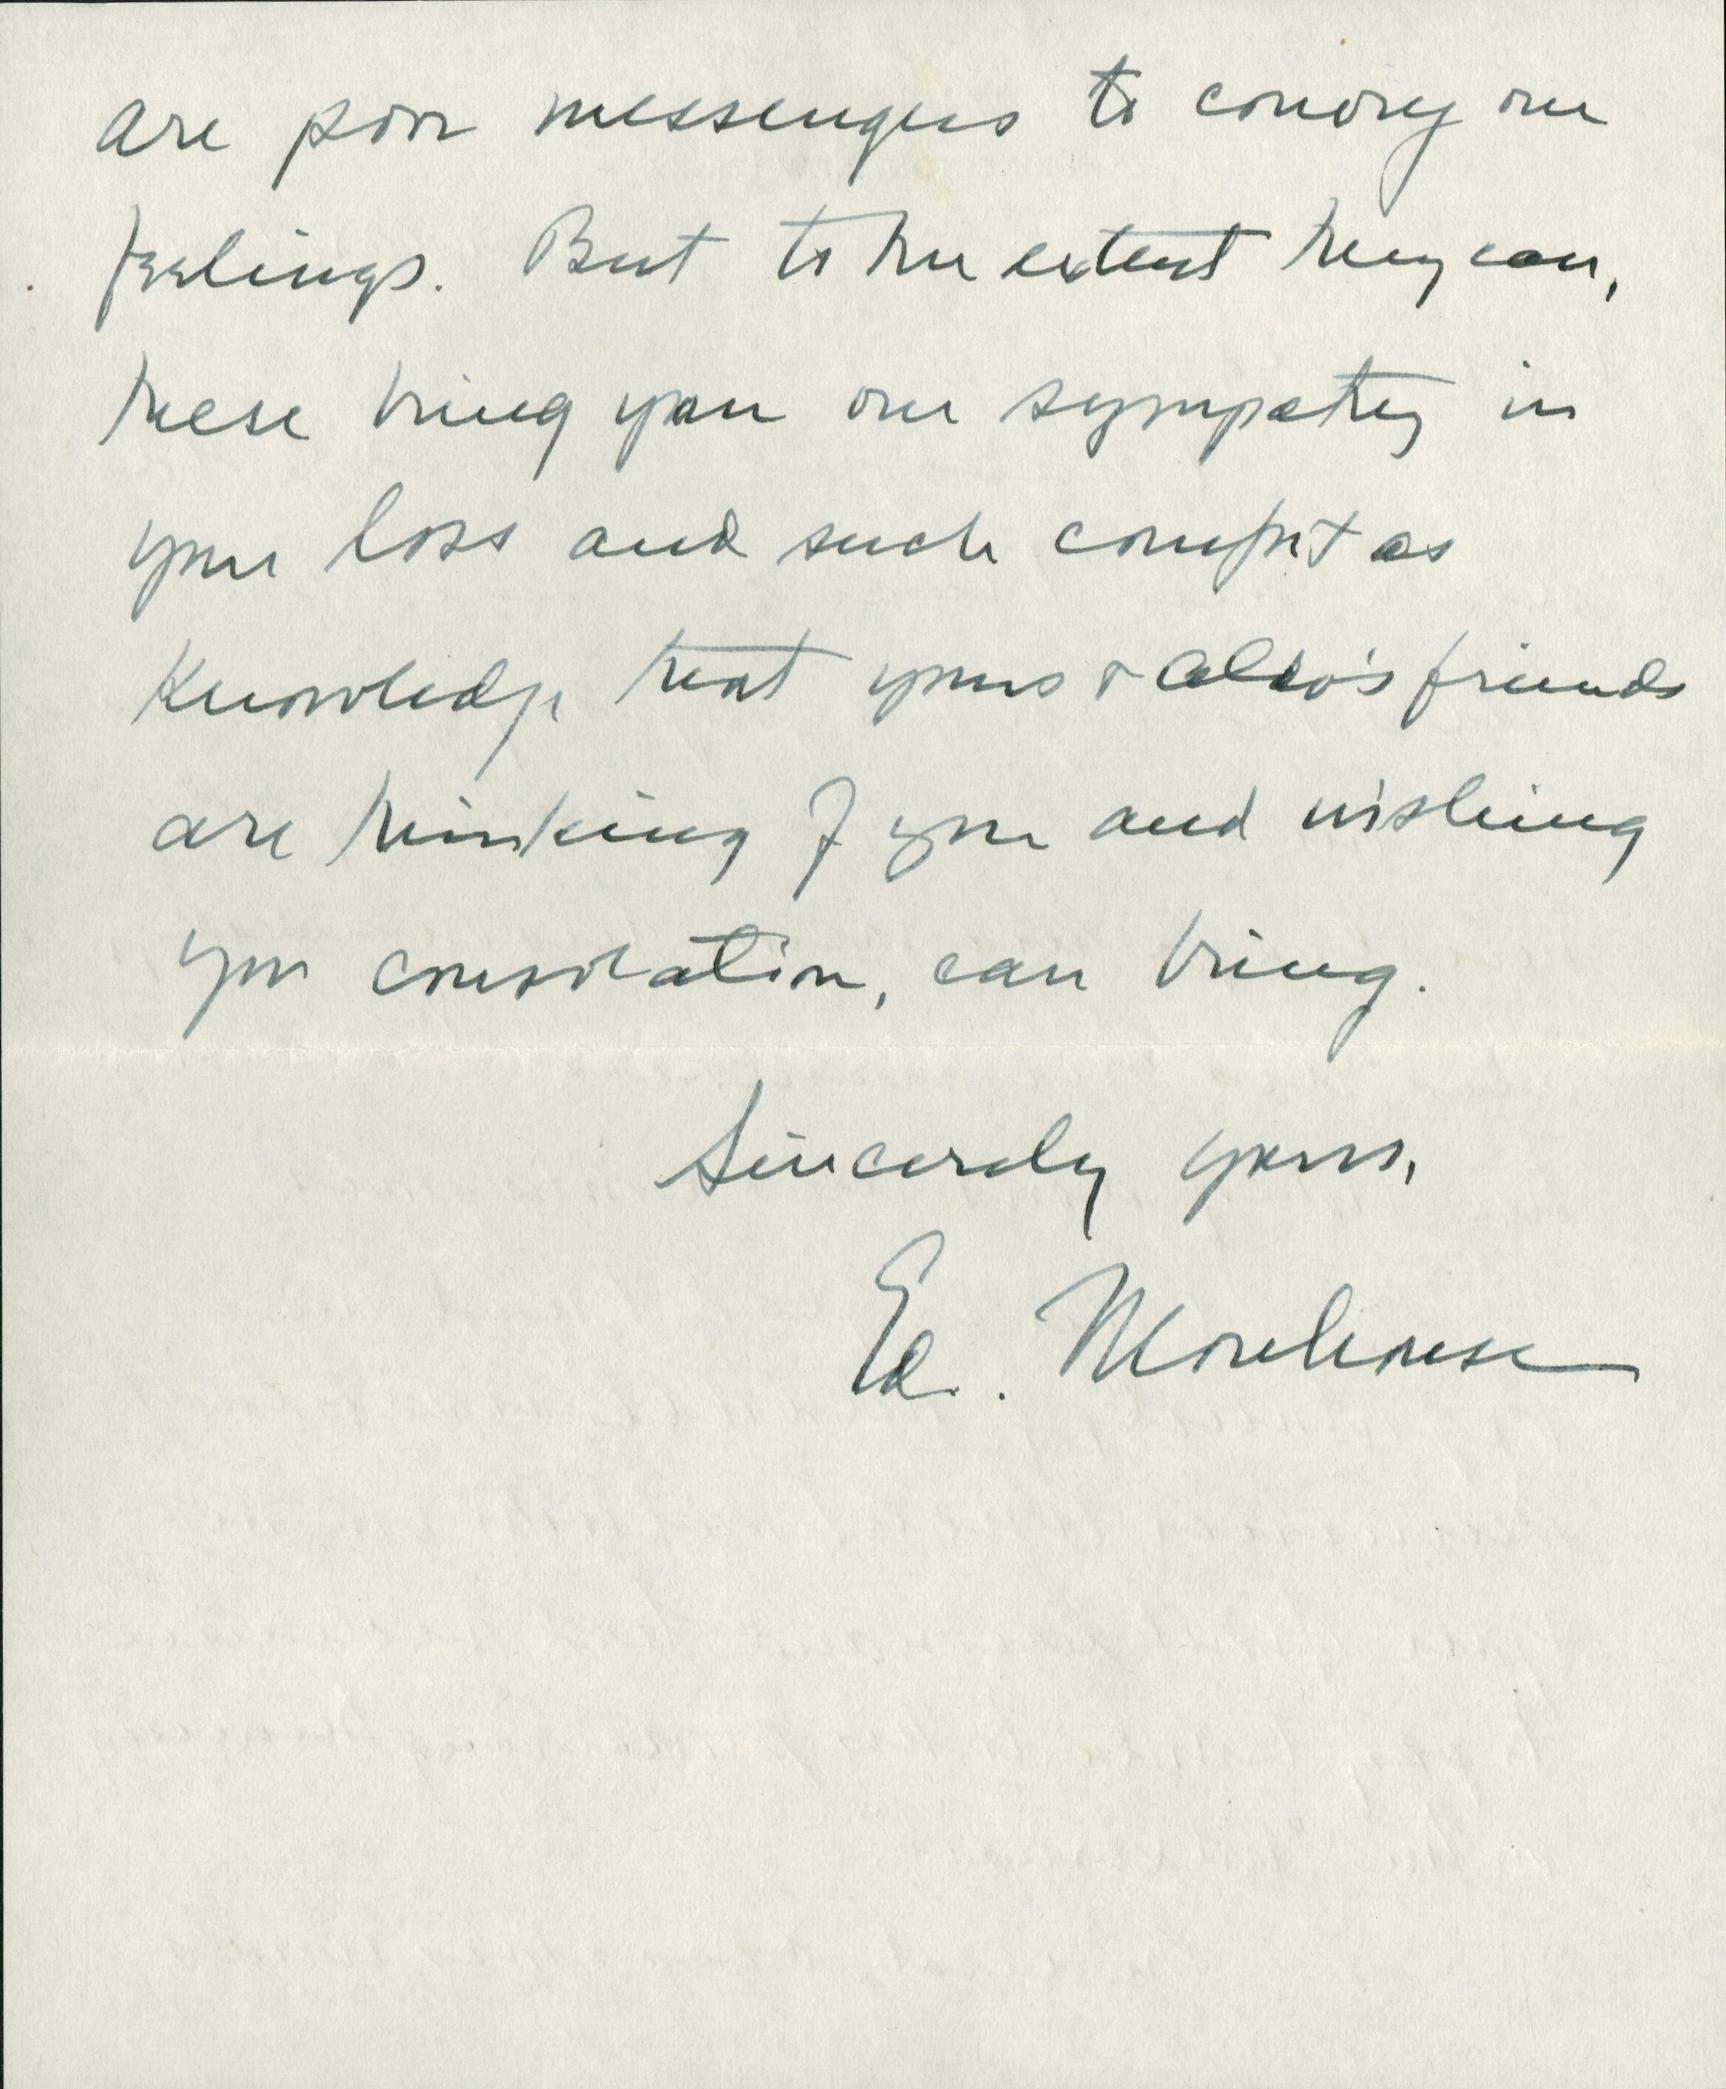 are poor messengers to convey our
feelings. But to the extent they can,
these bring you our sympathy in
your loss and such comfort as
knowledge that yours & Aldo's friends
are thinking of you and wishing
you consolation, can bring.
Sincerely yours,
Ed. Morehouse